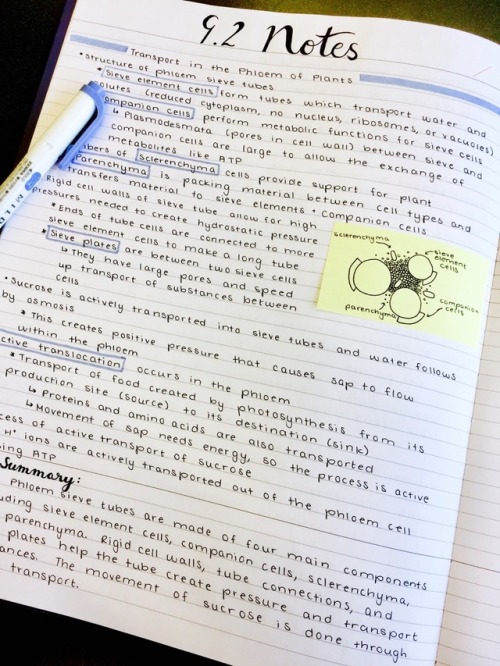 9.2 Notes
Transport in the Phloem of Plants
• Structure of phloem sieve tubes
* Sieve element cells form tubes which transport water and
solutes (reduced cytoplasm, no nucleus, ribosomes, or vacuoles)
companion cells perform metabolic functions for sieve cells
↳ Plasmodesmata (pores in cell wall) between sieve and
companion cells are large to allow the exchange of
metabolites like ATP
bers of sclerenchyma cells provide support for plant
Parenchyma is packing material between cell types and
transfers material to sieve elements + companion cells
Rigid cell walls of sieve tube allow for high
pressures needed to create hydrostatic pressure
* Ends of tube cells are connected to more
sieve element cells to make a long tube
* Sieve plates are between two sieve cells
↳ They have large pores and speed
up transport of substances between
cells
sclerenchyma
sieve
element
cells
companion
cells
parenchyma
• Sucrose is actively transported into sieve tubes and water follows
by osmosis
* This creates positive pressure that causes sap to flow
within the phloem
ctive translocation occurs in the phloem
* Transport of food created by photosynthesis from its
production site (source) to its destination (sink)
↳ Proteins and amino acids are also transported
↳ Movement of sap needs energy, so the process is active
cess of active transport of sucrose
H⁺ ions are actively transported out of the phloem cell
ing ATP
Summary:
Phloem sieve tubes are made of four main components
uding sieve element cells, companion cells, sclerenchyma,
parenchyma. Rigid cell walls, tube connections, and
plates help the tube create pressure and transport
ances. The movement of sucrose is done through
transport.